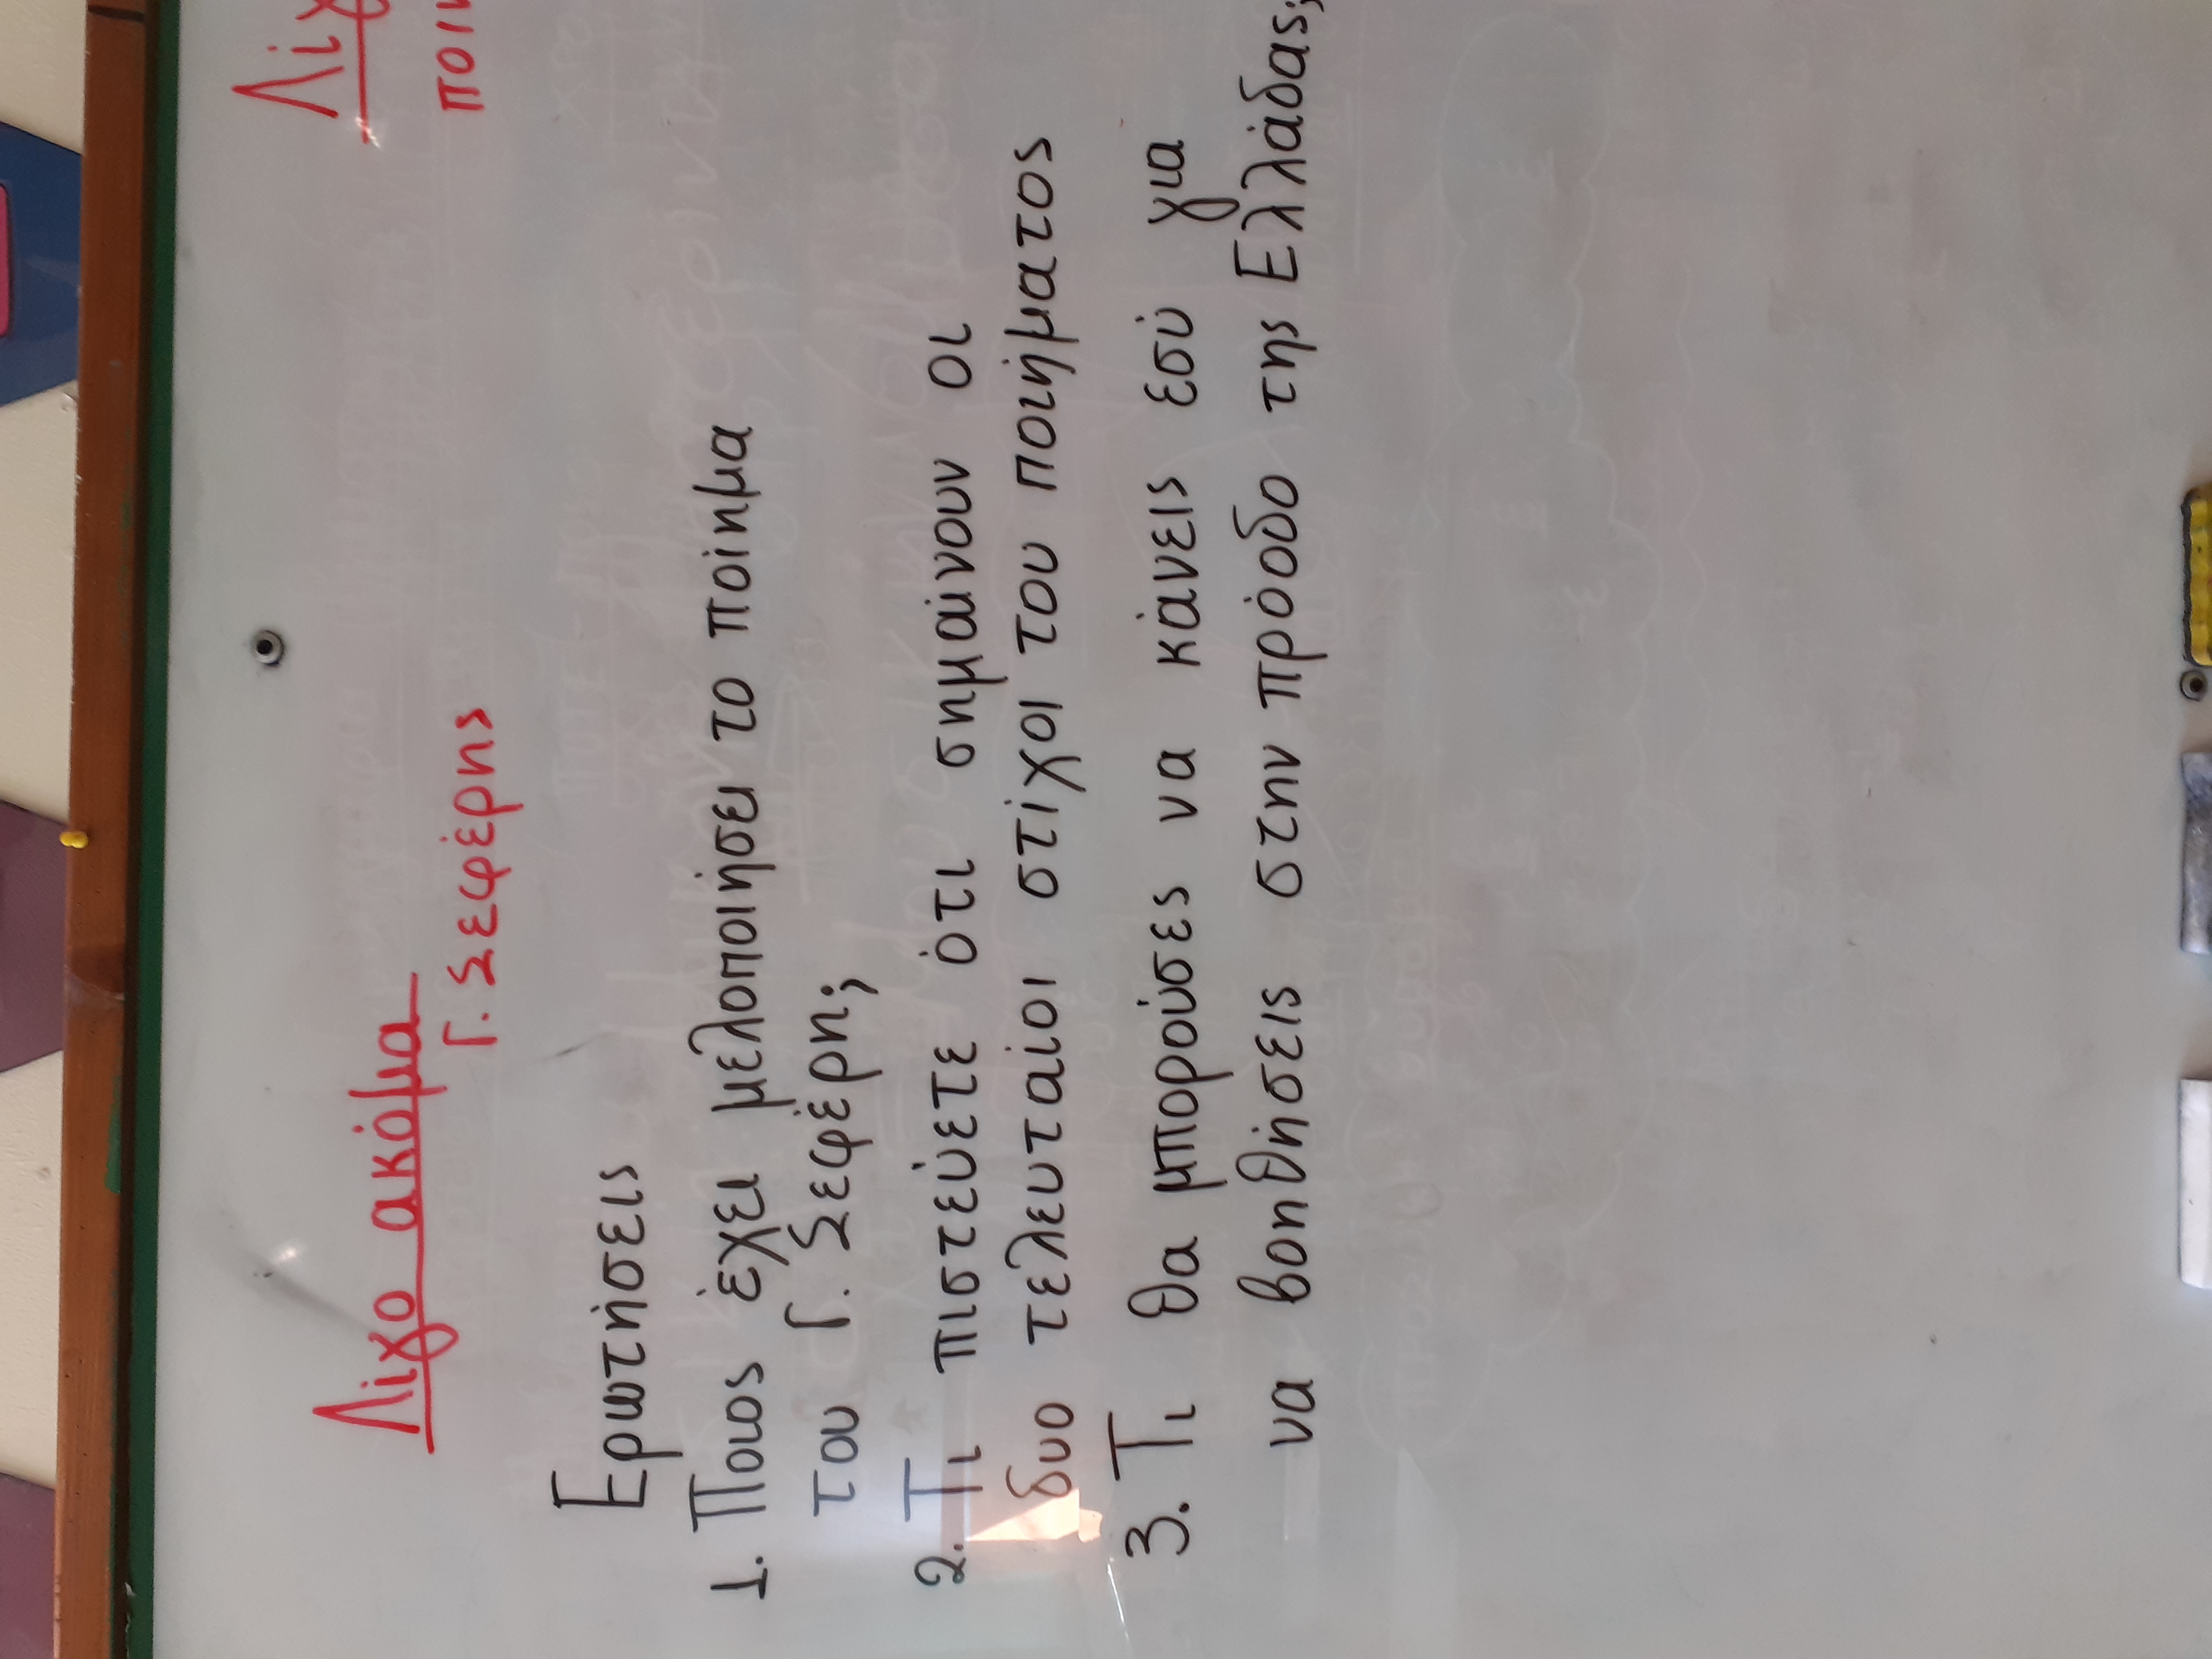 Λίγο ακόμα
Γ. Σεφέρης
Ερωτήσεις
1. Ποιος έχει μελοποιήσει το ποίημα
του Γ. Σεφέρη;
2. Τι πιστεύετε ότι σημαίνουν οι
δυο τελευταίοι στίχοι του ποιήματος
3. Τι θα μπορούσες να κάνεις εσύ για
να βοηθήσεις στην πρόοδο της Ελλάδας;